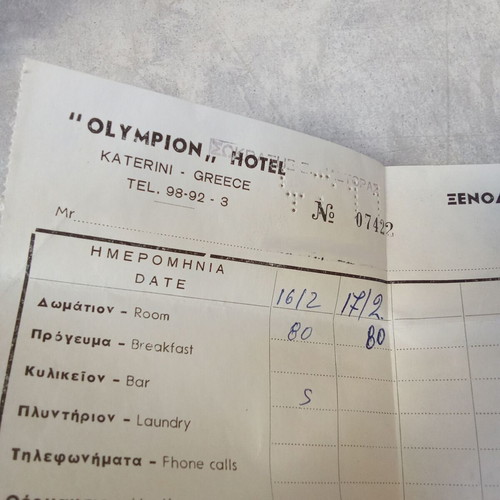 "OLYMPION„ HOTEL
KATERINI - GREECE
TEL. 98-92-3
№ 07422
ΞΕΝΟΔ
Mr
ΗΜΕΡΟΜΗΝΙΑ
DATE 16/2 17/2.
Δωμάτιον - Room 80 80
Πρόγευμα - Breakfast
Κυλικεῖον - Bar 5
Πλυντήριον - Laundry
Τηλεφωνήματα - Fhone calls